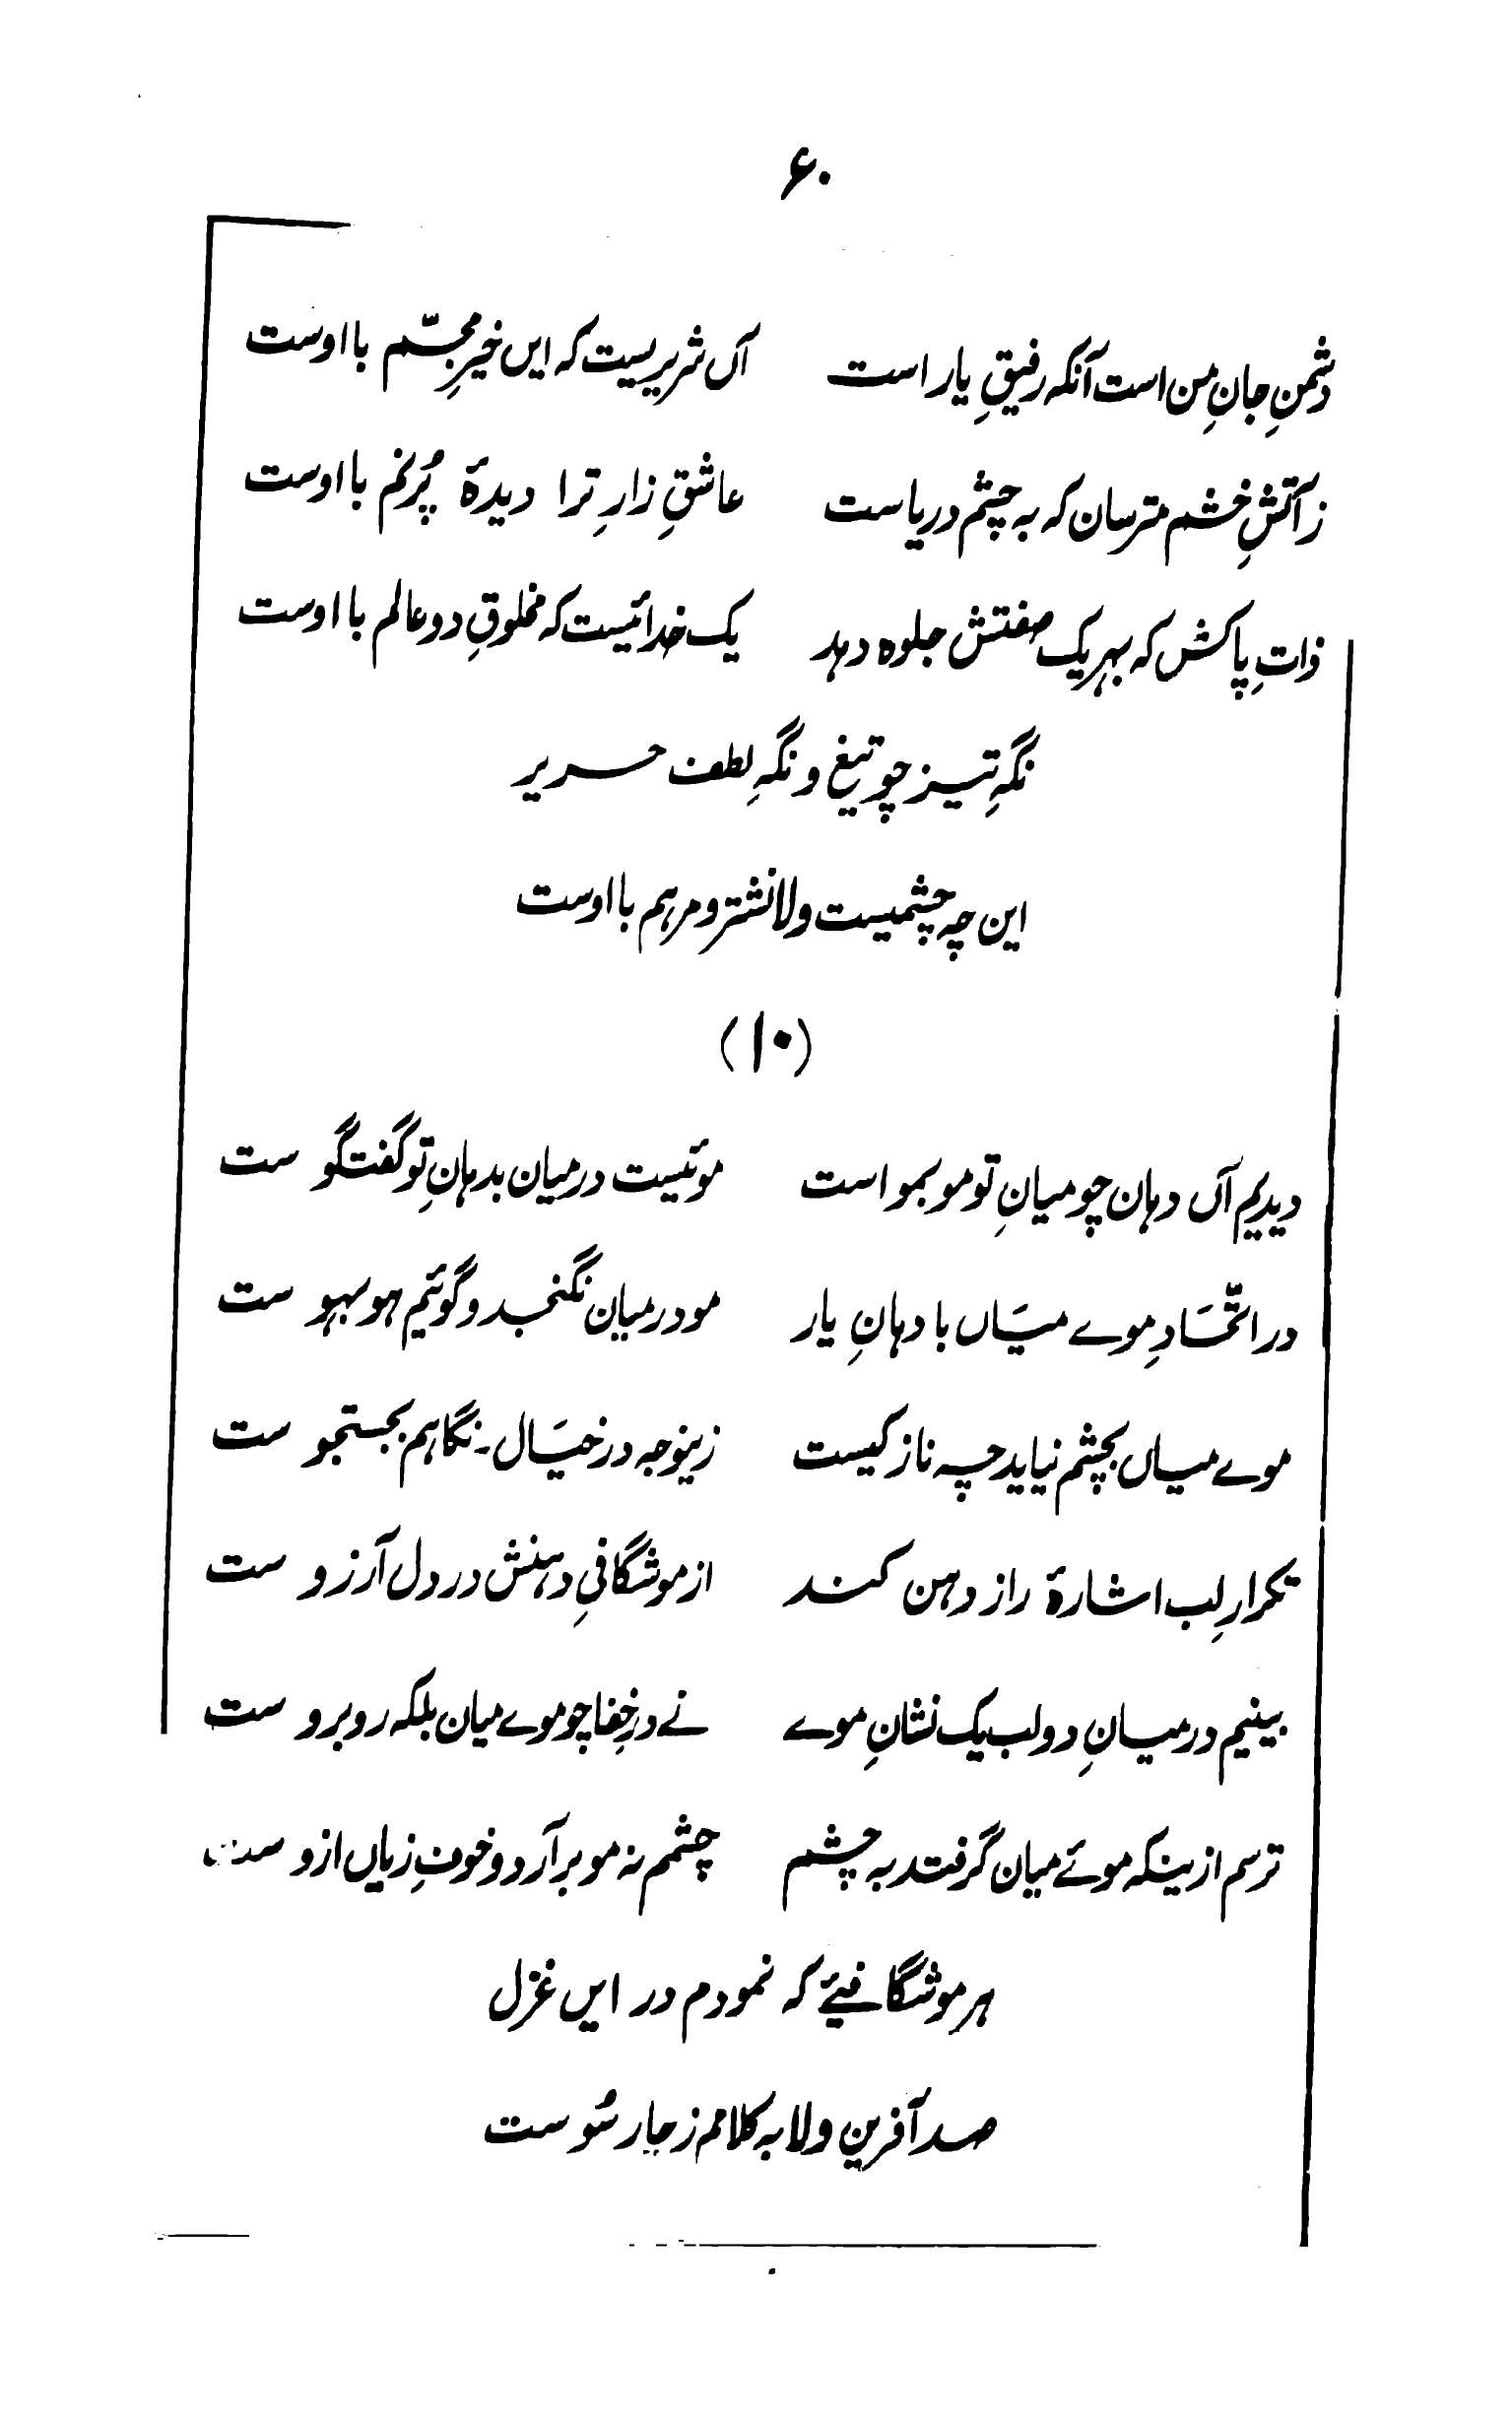 ۶۰
دشمنِ جانِ من است آنکہ رفیقِ یار است    آں شریریست کہ ایں خیرِ مجسّم با اوست
ز آتشِ خشم مترسان کہ بہ چشم دریاست    عاشقِ زارِ ترا دیدۂ پُرنم با اوست
ذاتِ پاکش کہ بہریک صفتش جلوہ دہد    یک خدائیست کہ مخلوقِ دو عالم با اوست
نگہِ تیز چو تیغ و نگہِ لطف حریر
این چہ چشمیست ولا نشتر و مرہم با اوست
(۱۰)
دیدیم آں دہان چو میانِ تو مو بمو است    موئیست درمیان بدہانِ تو گفتگو ست
در اتّحَادِ موے میَاں با دہانِ یار    مو درمیان نگنجد و گوئیم ہو بہو ست
موے میاں بچشم نیاید چہ نازکیست    زینوجہ در خیَال ۔ نگاہم بجستجو ست
تکرارِ لب اشارۂ راز دہن کند    از موشگافیِ دہنش در دل آرزو ست
بینیم درمیانِ دو لب یک نشانِ موے    نے در خِفا چو موے میان بلکہ روبرو ست
ترسم ازینکہ موئے میان گرفتد بہ چشم    چشمم نہ مو برآرد و خونِ زیاں ازو ست
ہر موشگافیۓ کہ نمودم در ایں غزل
صد آفرین ولا بہ کلامم ز چار سُو ست